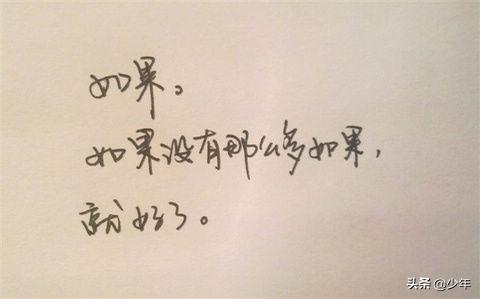 如果。
如果没有那么多如果，
就好了。
头条 @少年